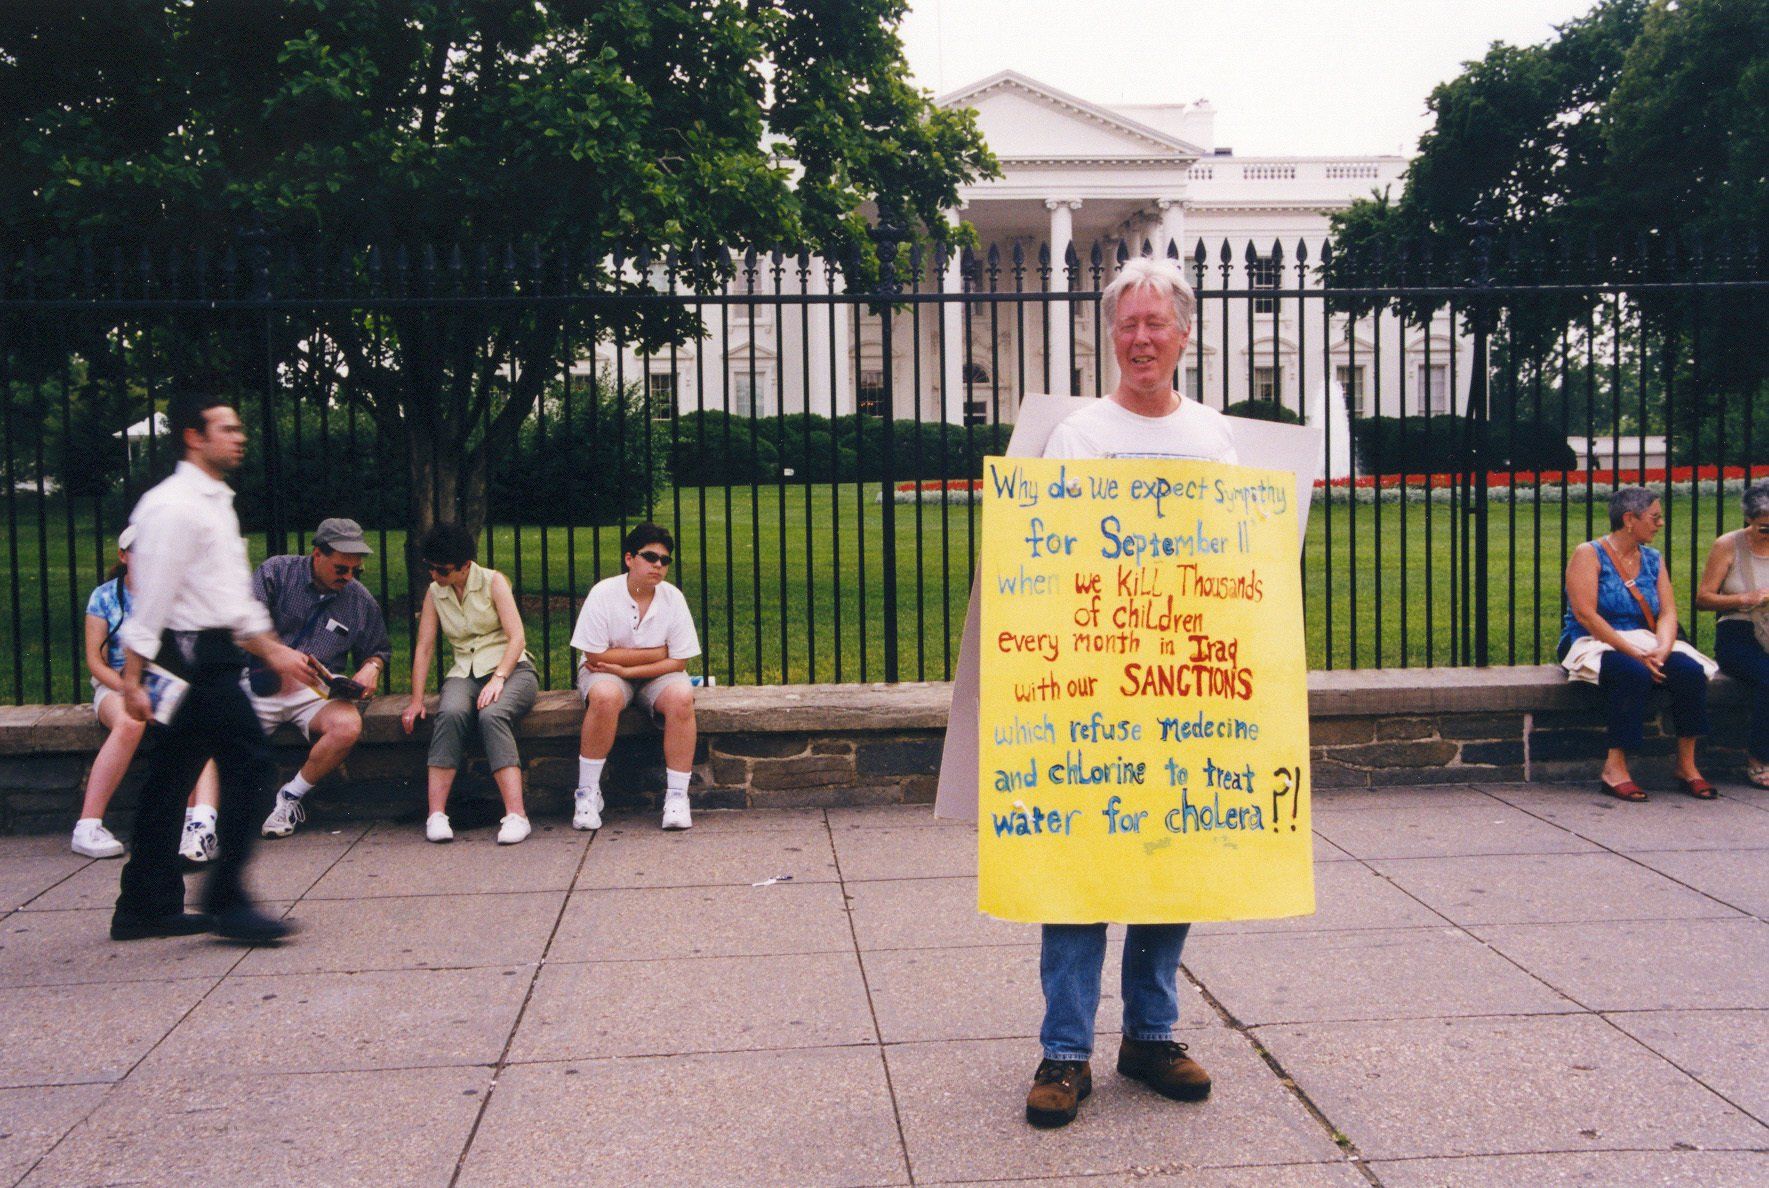 Why do we expect Sympathy
for September 11
when we KiLL Thousands
of chiLdren
every month in Iraq
with our SANCTIONS
which refuse Medecine
and chLorine to treat
water for choLera?!